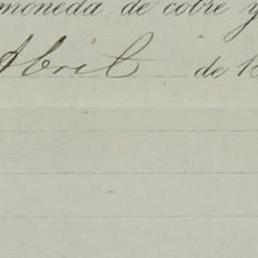 moneda de cobre y
Abril de 18